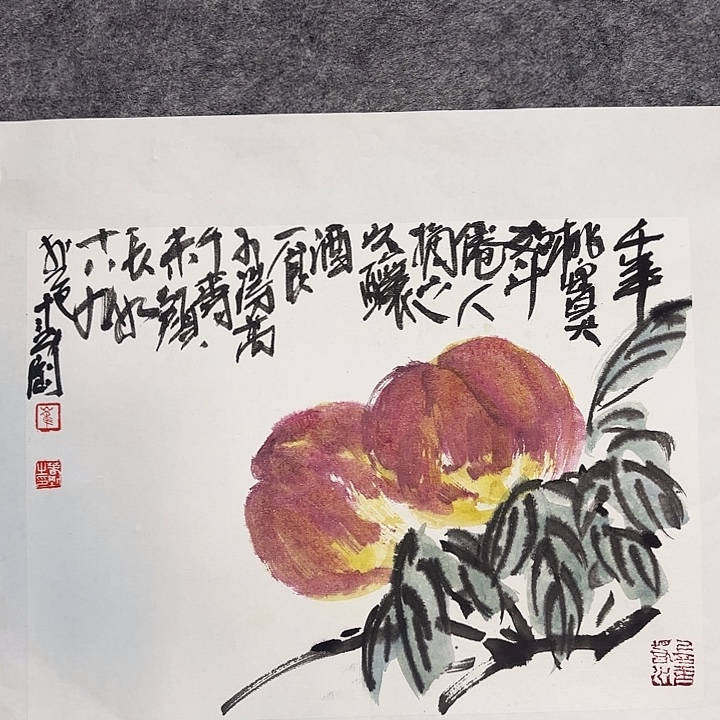 千年
桃實大
如斗
僊人
摘之
以釀
酒
一食
可得萬
千壽
朱顏
長如
十八九